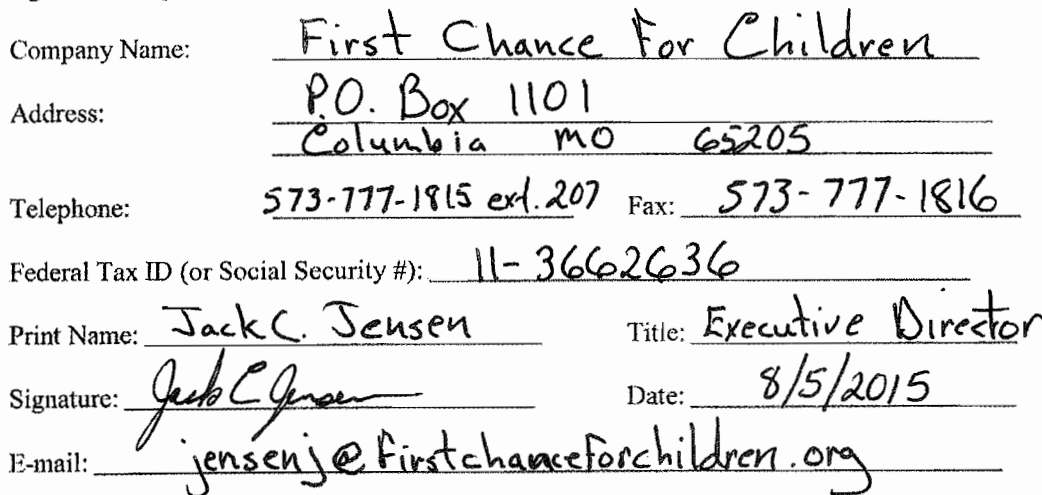 Company Name: First Chance For Children
Address: P.O. Box 1101
Columbia MO 65205
Telephone: 573-777-1815 ext. 207 Fax: 573-777-1816
Federal Tax ID (or Social Security #): 11-3662636
Print Name: Jack C. Jensen Title: Executive Director
Signature: Jack C Jensen Date: 8/5/2015
E-mail: jensenj@firstchanceforchildren.org